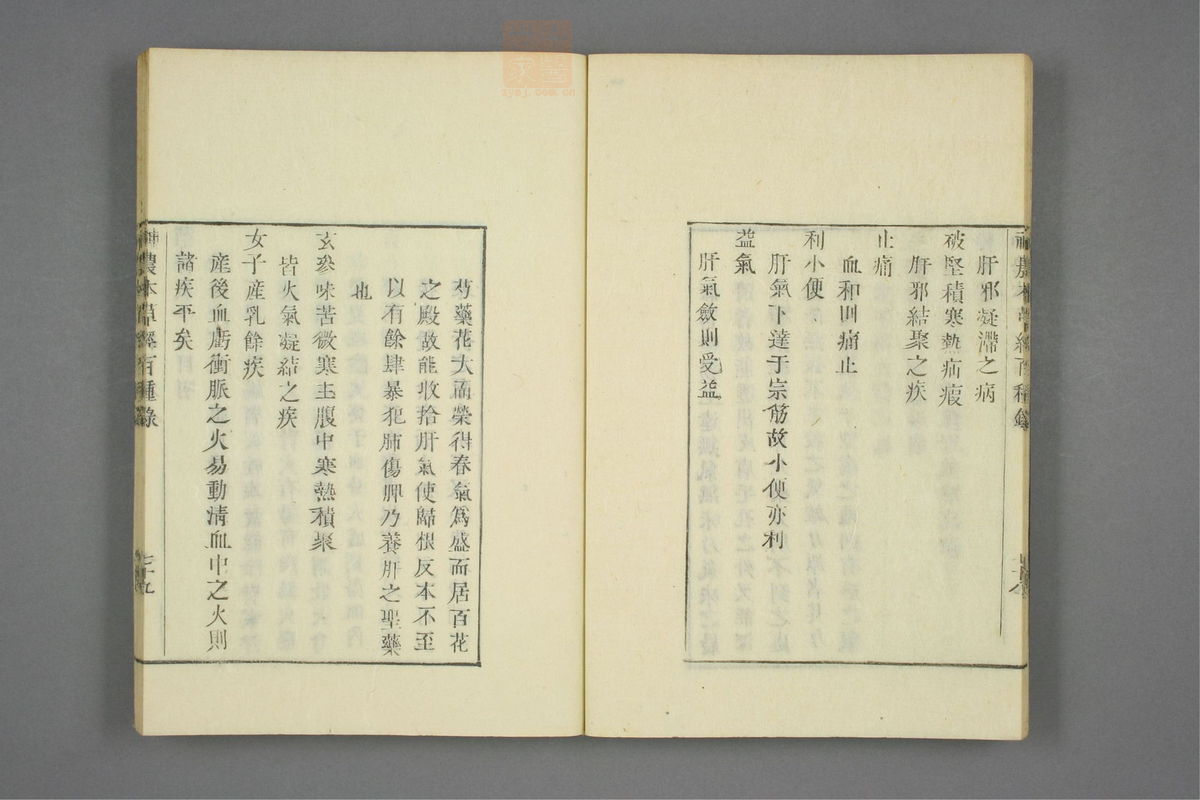 肝邪凝滯之病
破堅積寒熱疝瘕
肝邪結聚之疾
止痛
血和則痛止
利小便
肝氣下達于宗筋故小便亦利
益氣
肝氣斂則受益
芍藥花大而榮得春氣爲盛而居百花
之殿故能收拾肝氣使歸根反本不至
以有餘肆暴犯肺傷脾乃養肝之聖藥
也
玄參味苦微寒主腹中寒熱積聚
皆火氣凝結之疾
女子產乳餘疾
產後血虧衝脈之火易動清血中之火則
諸疾平矣
神農本草經百種錄
七十九
zysj.com.cn